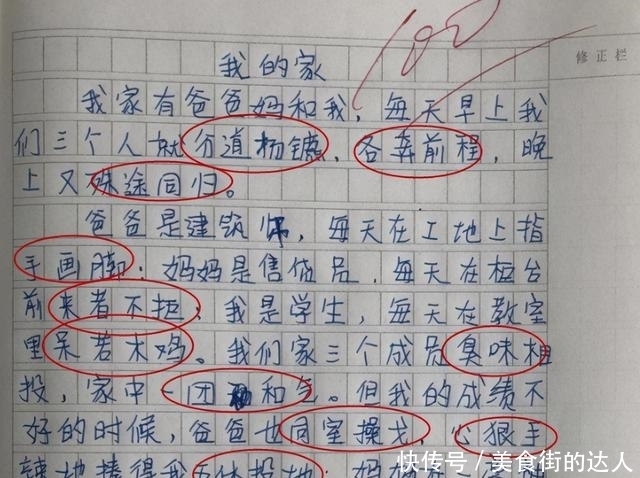 100
修正栏
我的家
我家有爸爸妈和我，每天早上我
们三个人就分道杨镳，各奔前程，晚
上又殊途同归。
爸爸是建筑师，每天在工地上指
手画脚；妈妈是售货员，每天在柜台
前来者不拒；我是学生，每天在教室
里呆若木鸡。我们家三个成员臭味相
投，家中一团和气。但我的成绩不
好的时候，爸爸也同室操戈，心狠手
辣地揍得我五体投地；妈妈在
快传号／美食街的达人